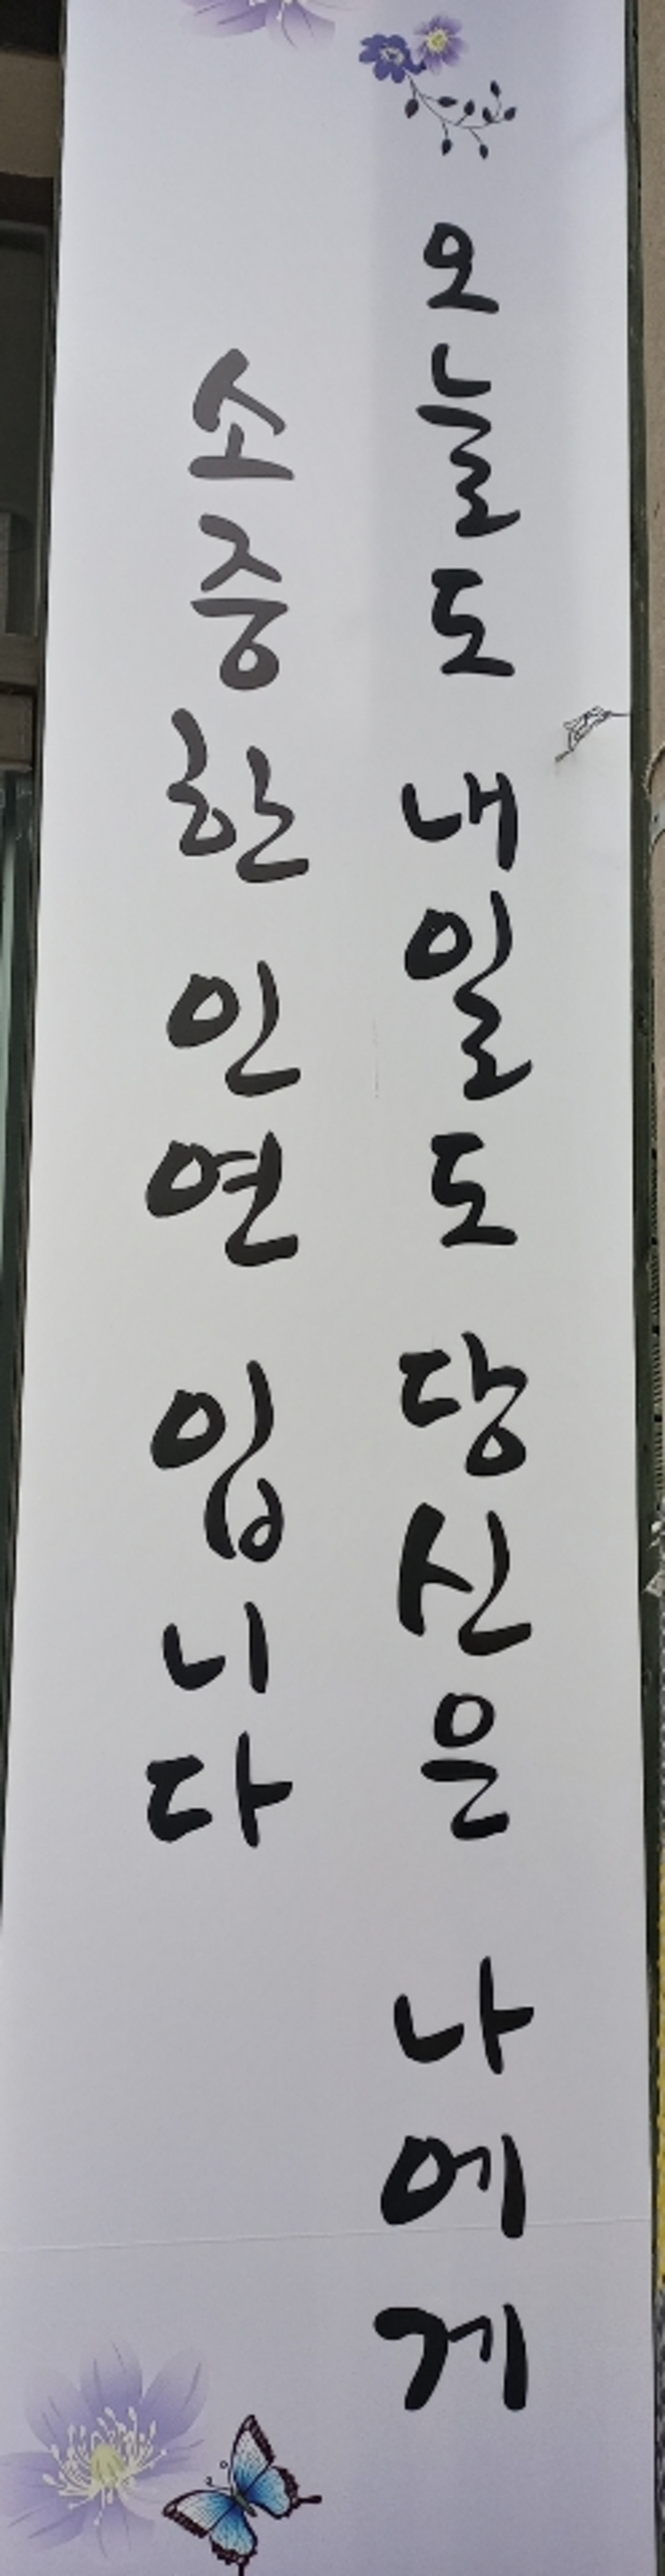 오늘도 내일도 당신은 나에게
소중한 인연 입니다